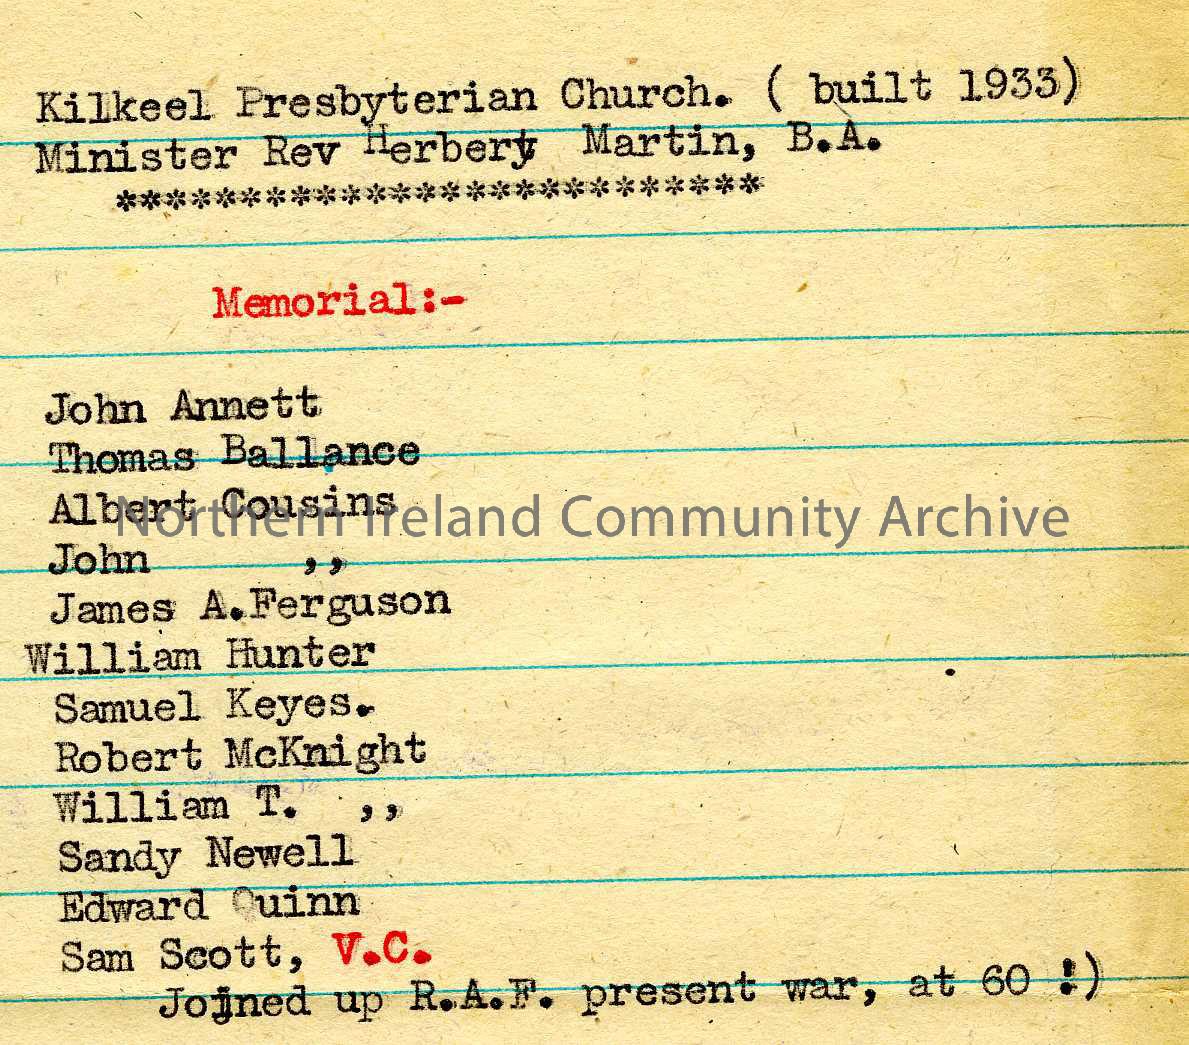 Kilkeel Presbyterian Church. ( built 1933)
Minister Rev Herbert Martin, B.A.
**************************
Memorial:-
John Annett
Thomas Ballance
Albert Cousins
Northern Ireland Community Archive
John ,,
James A.Ferguson
William Hunter
Samuel Keyes.
Robert McKnight
William T. ,,
Sandy Newell
Edward Quinn
Sam Scott, V.C.
Joined up R.A.F. present war, at 60 !)